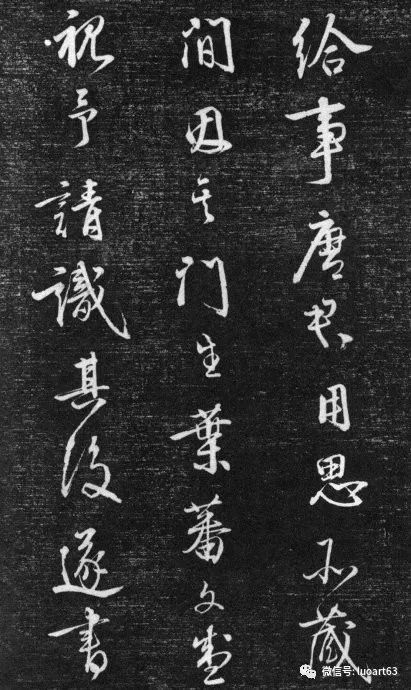 給事唐君用思所藏
間因其門生葉蕃文盛
視予請識其後遂書
微信号: luoart63